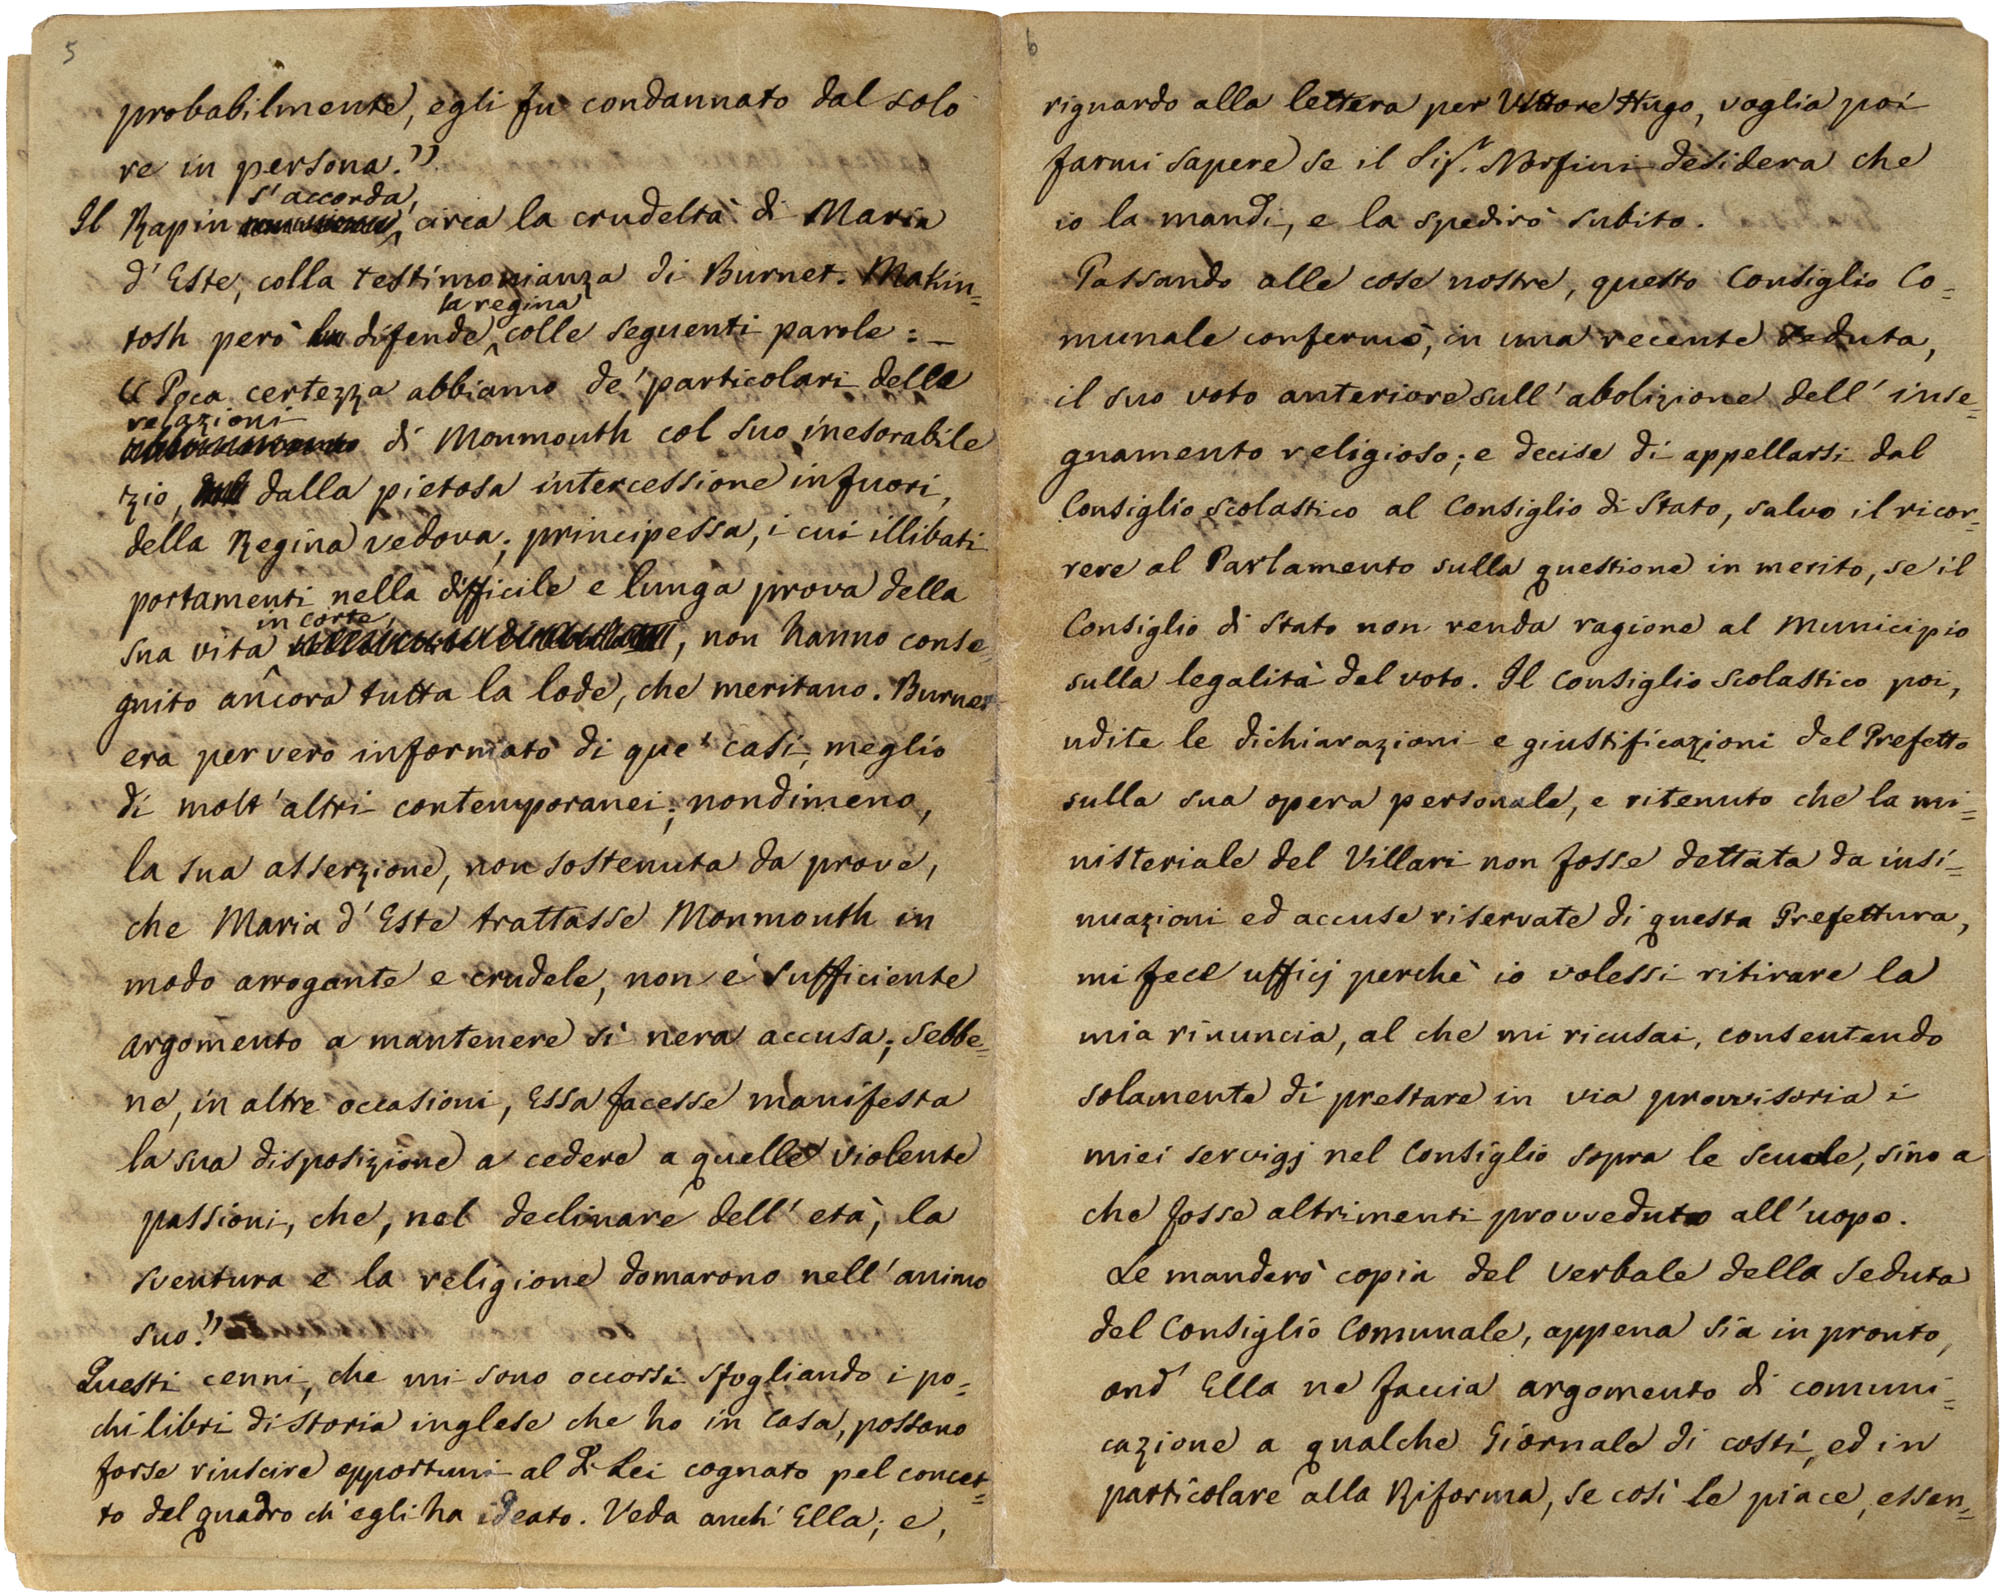 5
probabilmente, egli fu condannato dal solo
re in persona."
s'accorda,
Il Rapin circa la crudeltà di Maria
d'Este, colla testimonianza di Burnet. Makin=
la regina
tosh però difende colle seguenti parole: —
"Poca certezza abbiamo de' particolari delle
relazioni
di Monmouth col suo inesorabile
zio, dalla pietosa intercessione in fuori,
della Regina vedova; principessa, i cui illibati
portamenti nella difficile e lunga prova della
in corte,
sua vita, non hanno conse=
guito ancora tutta la lode, che meritano. Burnet
era per vero informato di que' casi, meglio
di molt'altri contemporanei; nondimeno,
la sua asserzione, non sostenuta da prove,
che Maria d'Este trattasse Monmouth in
modo arrogante e crudele, non è sufficiente
argomento a mantenere sì nera accusa; sebbe=
ne, in altre occasioni, Essa facesse manifesta
la sua disposizione a cedere a quelle violente
passioni, che, nel declinare dell'età, la
sventura e la religione domarono nell'animo
suo."
Questi cenni, che mi sono occorsi sfogliando i po=
chi libri di storia inglese che ho in casa, possono
forse riuscire opportuni al di Lei cognato pel concet=
to del quadro ch'egli ha ideato. Veda anch'Ella; e,
6
riguardo alla lettera per Vittore Hugo, voglia poi
farmi sapere se il Sigr. Norfini desidera che
io la mandi, e la spedirò subito.
Passando alle cose nostre, questo Consiglio Co=
munale confermò, in una recente seduta,
il suo voto anteriore sull'abolizione dell'inse=
gnamento religioso; e decise di appellarsi dal
Consiglio scolastico al Consiglio di Stato, salvo il ricor=
rere al Parlamento sulla questione in merito, se il
Consiglio di Stato non renda ragione al Municipio
sulla legalità del voto. Il Consiglio scolastico poi,
udite le dichiarazioni e giustificazioni del Prefetto
sulla sua opera personale, e ritenuto che la mi=
nisteriale del Villari non fosse dettata da insi=
nuazioni ed accuse riservate di questa Prefettura,
mi fece ufficj perchè io volessi ritirare la
mia rinuncia, al che mi ricusai, consentendo
solamente di prestare in via provvisoria i
miei servigj nel Consiglio sopra le scuole, sino a
che fosse altrimenti provveduto all'uopo.
Le manderò copia del verbale della seduta
del Consiglio Comunale, appena sia in pronto,
ond'Ella ne faccia argomento di comuni=
cazione a qualche Giornale di costì, ed in
particolare alla Riforma, se così le piace, essen=